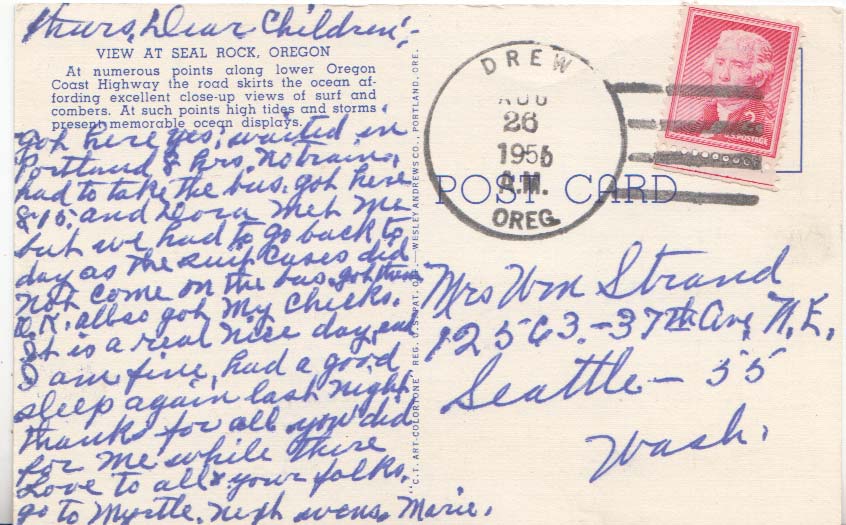 Thurs, Dear Children,-
VIEW AT SEAL ROCK, OREGON
At numerous points along lower Oregon
Coast Highway the road skirts the ocean af-
fording excellent close-up views of surf and
combers. At such points high tides and storms
present memorable ocean displays.
got here yes, waited in
Portland 8 hrs, no train,
had to take the bus. got here
8:15 and Dora met me
but we had to go back to
day as the suit cases did
not come on the bus. got them
O.K. allso got my checks.
It is a real nice day, and
I am fine, had a good
sleep again last night
thanks for all you did
for me while there
Love to all & your folks.
go to Myrtle. Marie.
"C.T. ART-COLORTONE" REG. U.S. PAT. OFF. — WESLEY ANDREWS CO., PORTLAND, ORE.
DREW
AUG
26
1955
A.M.
OREG.
POSTAGE
POST CARD
Mrs Wm Strand
12563.-37th Ave, N.E.
Seattle - 55
Wash.